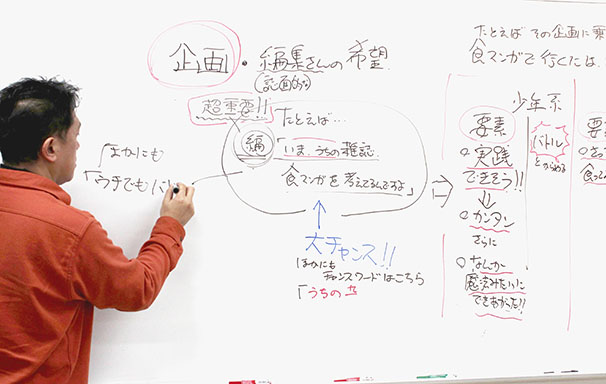 企画・編集さんの希望
(誌面的な)
超重要!!
たとえば…
編
「いま、うちの雑誌
食マンガを考えてるんですよ」
「ほかにも
「ウチでも
大チャンス!!
ほかにも
チャンスワードはこちら
「うちの
たとえば その企画に乗
食マンガで行くには、
少年系
要素
実践
できそう!!
カンタン
さらに
なんか
魔法みたいに
できあがった!!
バトル
とからめる